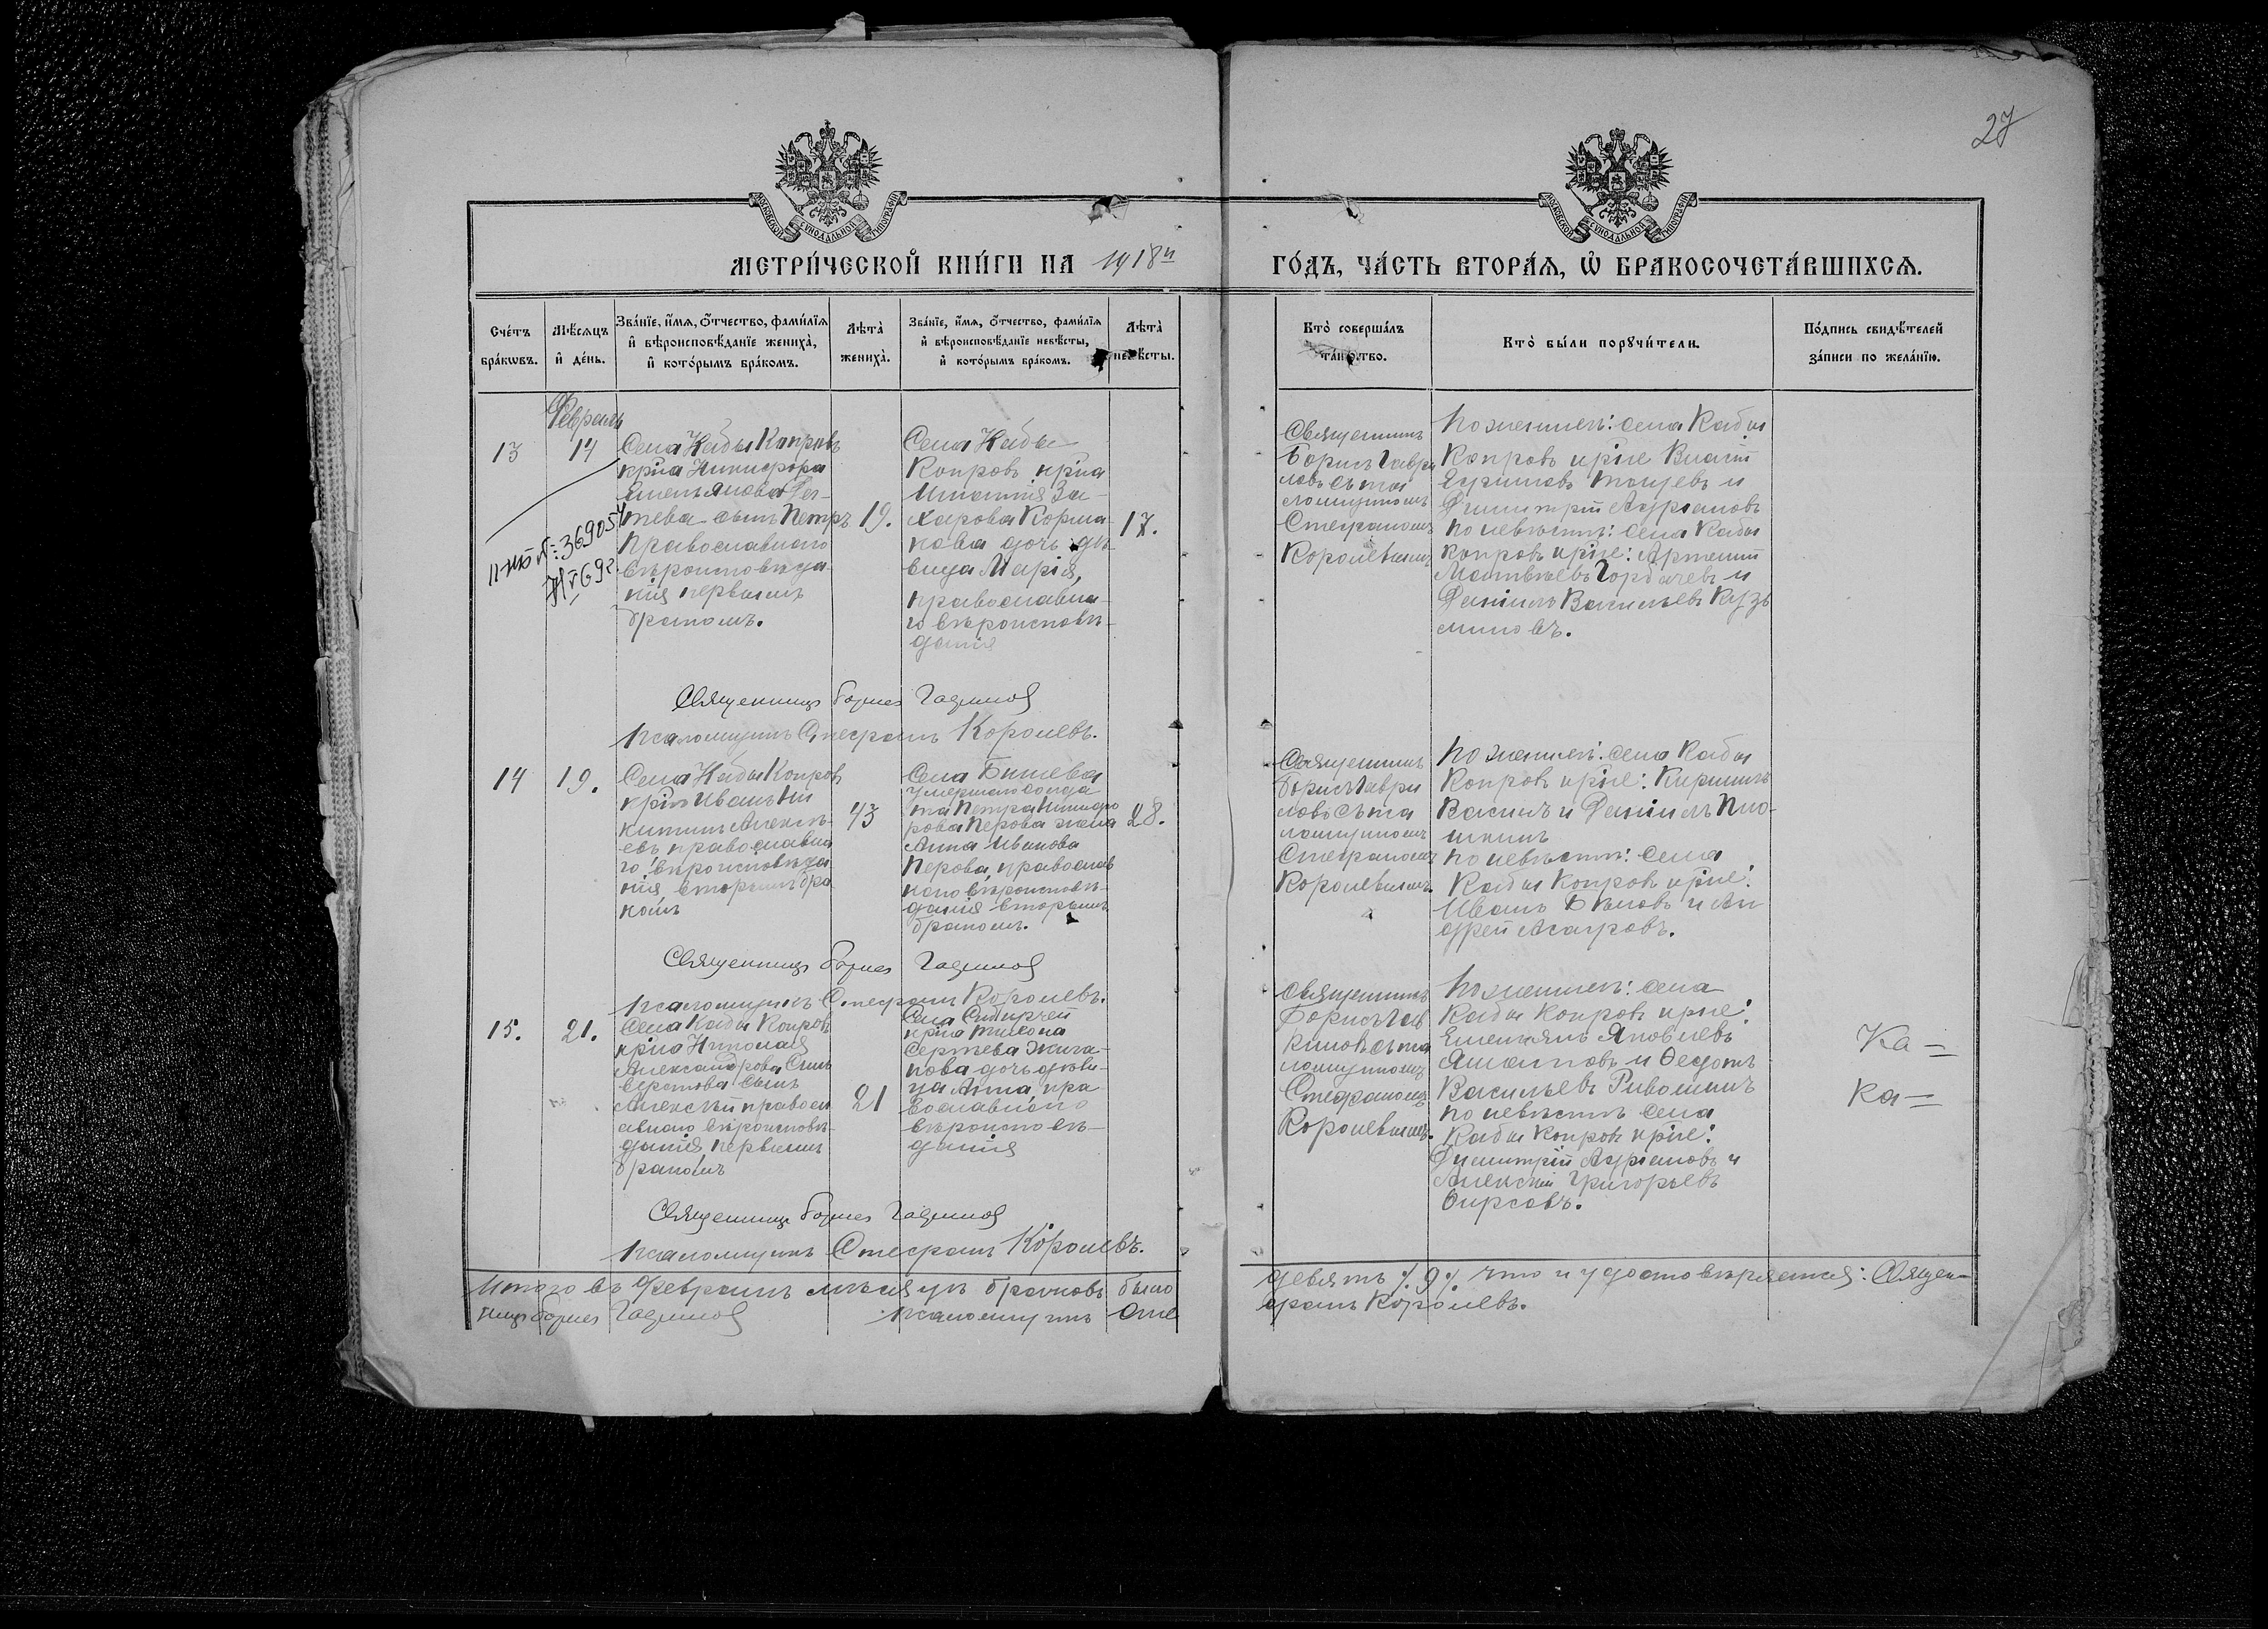 27
МЕТРИ́ЧЕСКОЙ КНИ́ГИ НА 1918й ГО́ДЪ, ЧА́СТЬ ВТОРА́Я, Ѡ БРАКОСОЧЕТА́ВШИХСЯ.
Сче́тъ бра́кѡвъ.
Мѣ́сяцъ и҆ де́нь.
Зва́нїе, и҆́мя, ѻ҆́тчество, фами́лїя и҆ вѣроисповѣ́данїе жениха̀, и҆ кото́рымъ бра́комъ.
Лѣ́та жениха̀.
Зва́нїе, и҆́мя, ѻ҆́тчество, фами́лїя и҆ вѣроисповѣ́данїе невѣ́сты, и҆ кото́рымъ бра́комъ.
Лѣ́та невѣ́сты.
Кто̀ соверша́лъ та́инство.
Кто̀ бы́ли порꙋчи́тели.
По́дпись свидѣ́телей за́писи по жела́нїю.
Февраль
13
14
Села Кабы Копровъ
кр҃на Никифора
Емельянова
тева сынъ Петръ
православнаго
вѣроисповѣда
нія первымъ
бракомъ.
№ 369054
69г.
19.
Села Кабы
Копровъ кр҃на
Игнатія За-
харова Корма-
кова дочь дѣ-
вица Марія,
православна-
го вѣроисповѣ-
данія
17.
Священникъ
Борисъ Гаври
ловъ съ пса
ломщикомъ
Стефаномъ
Королевымъ
По женихѣ: села Кабы
Копровъ кр҃не
и
Димитрій Адріановъ
по невѣстѣ: села Кабы
Копровъ кр҃не: Артемій
Матвѣевъ Горбачевъ и
Даніилъ Васильевъ Кузь
миновъ.
Священникъ Борисъ Гаврилов
Псаломщикъ Стефанъ Королевъ.
14
19.
Села Кабы Копровъ
кр҃нъ Иванъ Ни
китинъ Алексѣ-
евъ православна
го вѣроисповѣда
нія вторымъ бра
комъ
43
Села Бишева
умершаго солда
та Петра Никифо
рова Перова жена
Анна Иванова
Перова, православ
наго вѣроисповѣ-
данія вторымъ
бракомъ.
28.
Священникъ
Борисъ Гаври
ловъ съ пса
ломщикомъ
Стефаномъ
Королевымъ.
По женихѣ: села Кабы
Копровъ кр҃не: Кириллъ
Васинъ и Даніилъ Плю-
шкинъ
по невѣстѣ: села
Кабы Копровъ кр҃не:
Иванъ Бѣловъ и Ан
дрей Асафовъ.
Священникъ Борисъ Гаврилов
Псаломщикъ Стефанъ Королевъ.
15.
21.
Села Кабы Копровъ
кр҃на Николая
Александрова Силь
верстова сынъ
Алексѣй правосл
авнаго вѣроисповѣ-
данія, первымъ
бракомъ
21
Села Сибирчей
кр҃на Тихона
Сергѣева Жига-
нова дочь дѣви-
ца Анна, пра
вославнаго
вѣроисповѣ-
данія
Священникъ
Борисъ Гав
риловъ съ пса
ломщикомъ
Стефаномъ
Королевымъ.
По женихѣ: села
Кабы Копровъ кр҃не:
Емельянъ Яковлевъ
и Ѳедотъ
Васильевъ
по невѣстѣ села
Кабы Копровъ кр҃не:
Димитрій Адріановъ и
Алексѣй Григорьевъ
Ѳирсовъ.
Ка =
Ка =
Священникъ Борисъ Гаврилов
Псаломщикъ Стефанъ Королевъ.
Итого въ февралѣ мѣсяцѣ браковъ было девять ./. 9 ./. что и удостовѣряется: Священ-
никъ Борисъ Гаврилов псаломщикъ Сте
фанъ Королевъ.